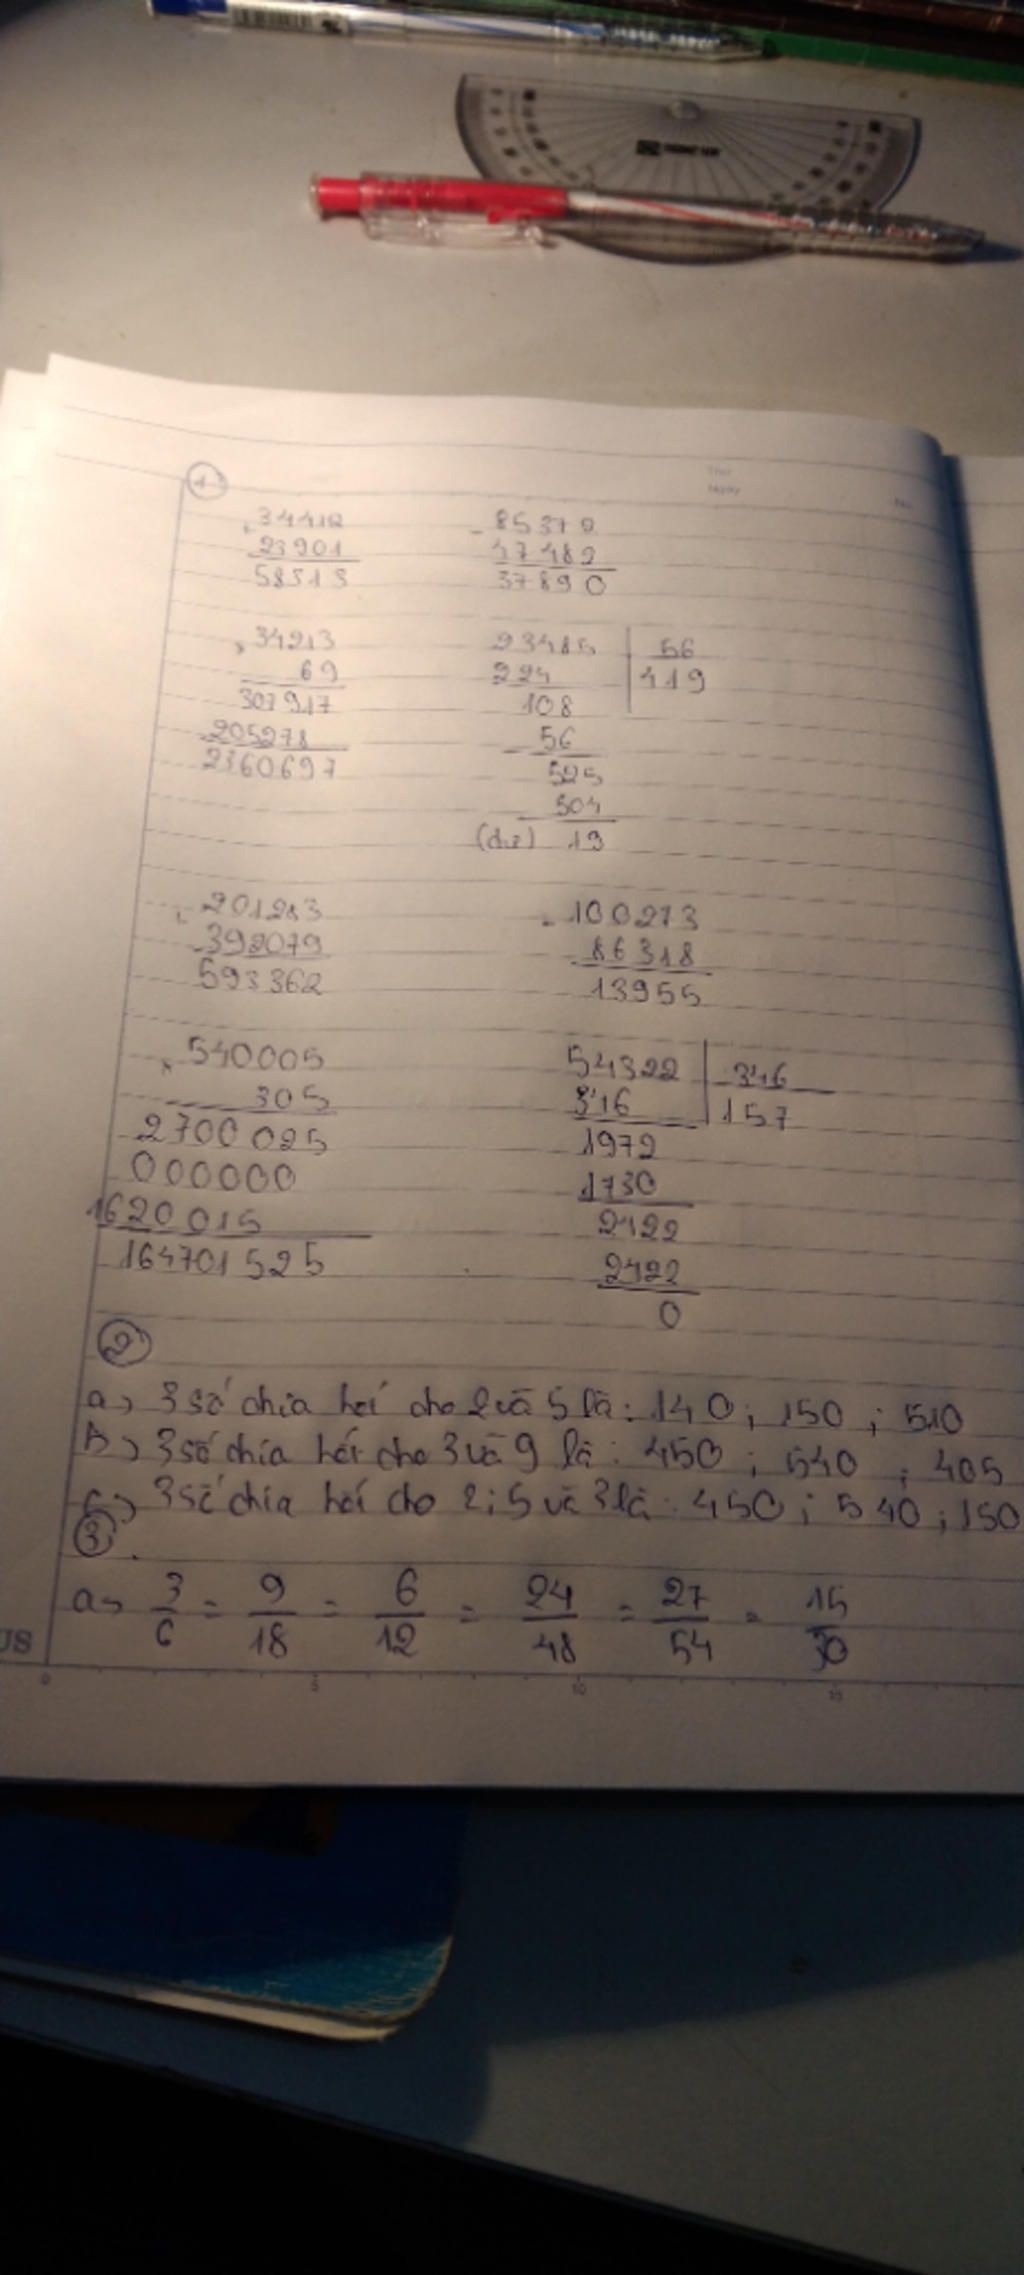 1
Thứ
Ngày
No.
+ 34412 - 85372
23901 47482
58313 37890
x 34213 23485 56
69 224 419
307917 108
205278 56
2360697 525
504
(dư) 19
+ 201283 - 100273
392079 86318
593362 13955
x 540005 54322 346
305 346 157
2700025 1972
000000 1730
1620015 2422
164701525 2422
0
2
a, 3 số chia hết cho 2 và 5 là: 140; 150; 510
b, 3 số chia hết cho 3 và 9 là: 450; 540; 405
c, 3 số chia hết cho 2; 5 và 3 là: 450; 540; 150
3
a, 3/6 = 9/18 = 6/12 = 24/48 = 27/54 = 15/30
US
0 5 10 15